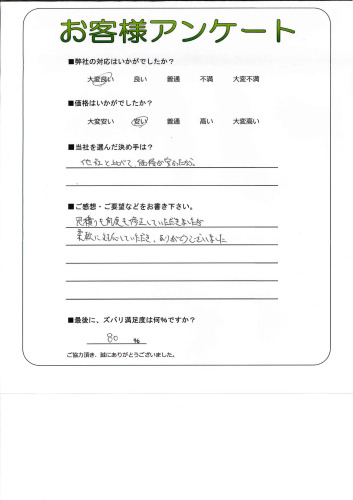 お客様アンケート
■弊社の対応はいかがでしたか？
大変良い 良い 普通 不満 大変不満
■価格はいかがでしたか？
大変安い 安い 普通 高い 大変高い
■当社を選んだ決め手は？
他社と比べて、価格が安かったから。
■ご感想・ご要望などをお書き下さい。
見積りも何度も修正していただきましたが
柔軟に対応していただき、ありがとうございました
■最後に、ズバリ満足度は何％ですか？
80 ％
ご協力頂き、誠にありがとうございました。